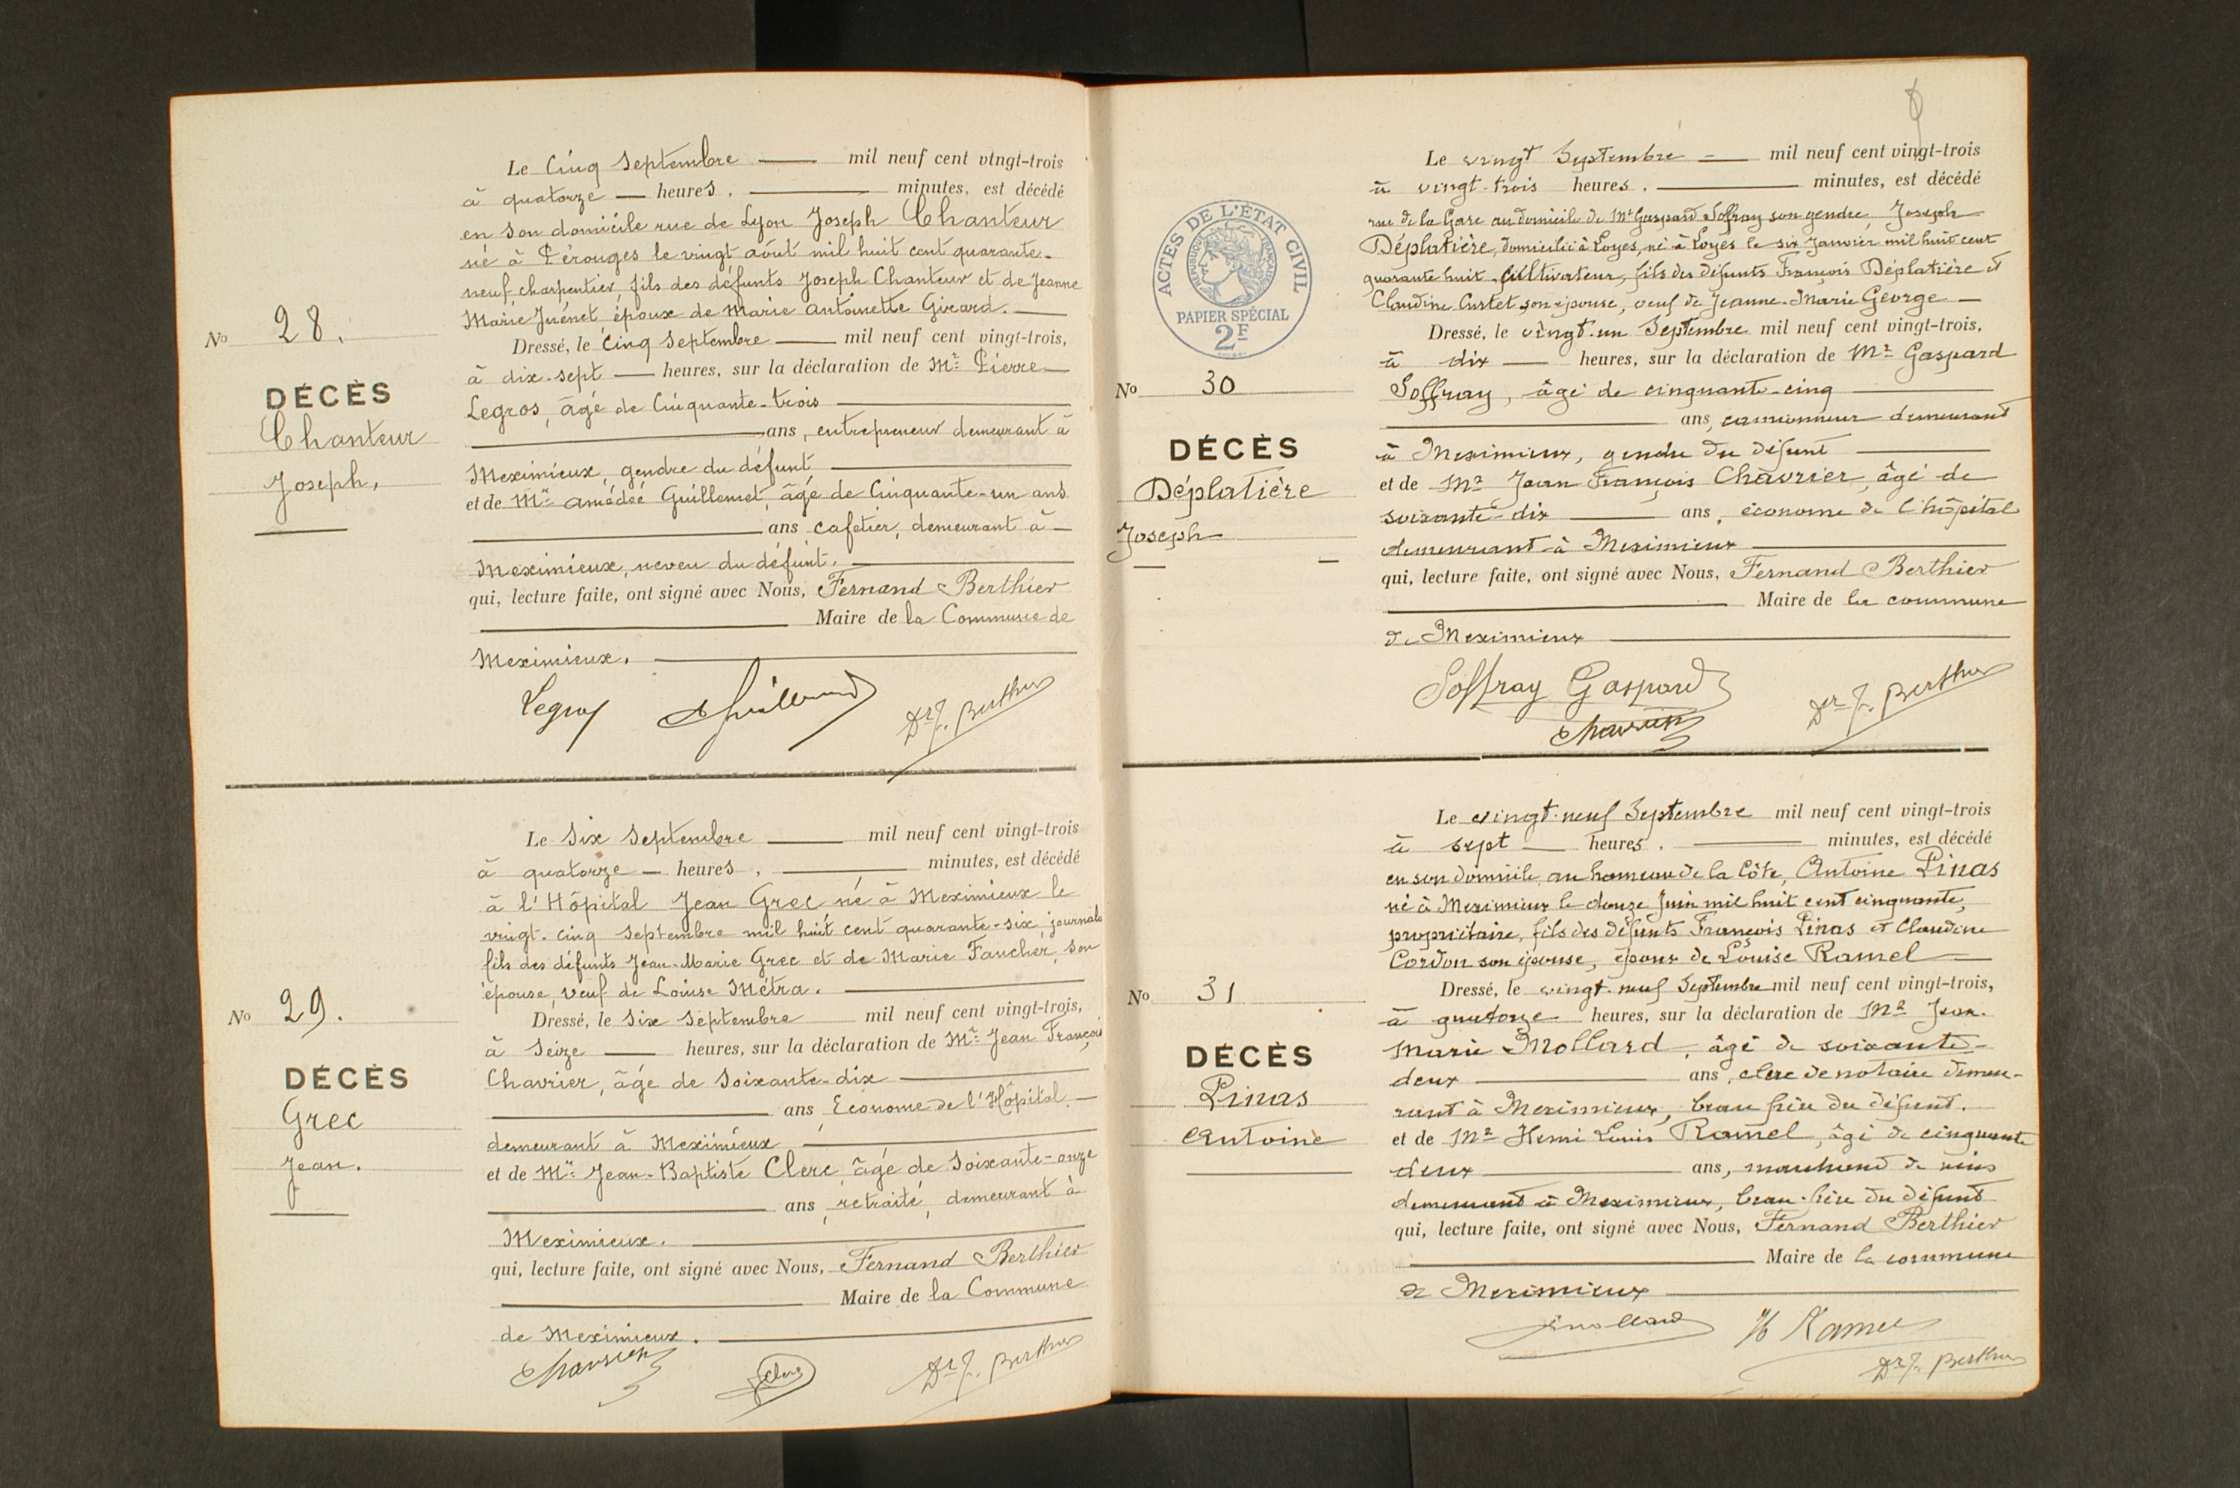 Le Cinq Septembre mil neuf cent vingt-trois
à quatorze heures. minutes, est décédé
en son domicile rue de Lyon Joseph Chanteur
né à Pérouges le vingt août mil huit cent quarante-
neuf charpentier, fils des défunts Joseph Chanteur et de Jeanne
Marie Juénet époux de Marie Antoinette Girard.
No 28.
Dressé, le cinq Septembre mil neuf cent vingt-trois,
à dix-sept heures, sur la déclaration de Mr Pierre
DÉCÈS
Chanteur
Joseph,
Legros, âgé de Cinquante-trois
ans, entrepreneur demeurant à
Meximieux, gendre du défunt
et de Mr Amédée Guillemet, âgé de Cinquante-un ans
ans cafetier, demeurant à
Meximieux, neveu du défunt.
qui, lecture faite, ont signé avec Nous, Fernand Berthier
Maire de la Commune de
Meximieux.
Legros
Dr F. Berthier
Le Six Septembre mil neuf cent vingt-trois
à quatorze heures, minutes, est décédé
à l'Hôpital Jean Grec né à Meximieux le
vingt-cinq Septembre mil huit cent quarante-six, journalier
fils des défunts Jean-Marie Grec et de Marie Faucher, son
épouse, veuf de Louise Métra.
No 29.
Dressé, le Six Septembre mil neuf cent vingt-trois,
à Seize heures, sur la déclaration de Mr Jean François
DÉCÈS
Grec
Jean.
Chavrier, âgé de Soixante-dix
ans, Econome de l'Hôpital
demeurant à Meximieux
et de Mr Jean-Baptiste Clerc, âgé de Soixante-onze
ans, retraité, demeurant à
Meximieux.
qui, lecture faite, ont signé avec Nous, Fernand Berthier
Maire de la Commune
de Meximieux.
Chavrier
Clerc
Dr F. Berthier
ACTES DE L'ÉTAT CIVIL
RÉPUBLIQUE FRANÇAISE
PAPIER SPÉCIAL
2F
Le vingt Septembre mil neuf cent vingt-trois
à vingt-trois heures. minutes, est décédé
rue de la Gare au domicile de Mr Gaspard Soffray son gendre Joseph
Déplatière, domicilié à Loyes, né à Loyes le six Janvier mil huit cent
quarante huit, cultivateur, fils des défunts François Déplatière et
Claudine Curtet son épouse, veuf de Jeanne-Marie George
No 30
Dressé, le vingt-un Septembre mil neuf cent vingt-trois,
à dix heures, sur la déclaration de Mr Gaspard
DÉCÈS
Déplatière
Joseph
Soffray, âgé de cinquante-cinq
ans, camionneur demeurant
à Meximieux, gendre du défunt
et de Mr Jean François Chavrier, âgé de
soixante-dix ans, économe de l'hôpital
demeurant à Meximieux
qui, lecture faite, ont signé avec Nous, Fernand Berthier
Maire de la commune
de Meximieux
Soffray Gaspard
Chavrier
Dr F. Berthier
Le vingt-neuf Septembre mil neuf cent vingt-trois
à sept heures. minutes, est décédé
en son domicile, au hameau de la Côte, Antoine Pinas
né à Meximieux le douze Juin mil huit cent cinquante,
propriétaire, fils des défunts François Pinas et Claudine
Cordon son épouse, époux de Louise Ramel
No 31
Dressé, le vingt-neuf Septembre mil neuf cent vingt-trois,
à quatorze heures, sur la déclaration de Mr Jean-
DÉCÈS
Pinas
Antoine
Marie Mollard, âgé de soixante-
deux ans, clerc de notaire demeu-
rant à Meximieux, beau frère du défunt.
et de Mr Henri Louis Ramel, âgé de cinquante
deux ans, marchand de vins
demeurant à Meximieux, beau-frère du défunt
qui, lecture faite, ont signé avec Nous, Fernand Berthier
Maire de la commune
de Meximieux
Mollard
H Ramel
Dr F. Berthier